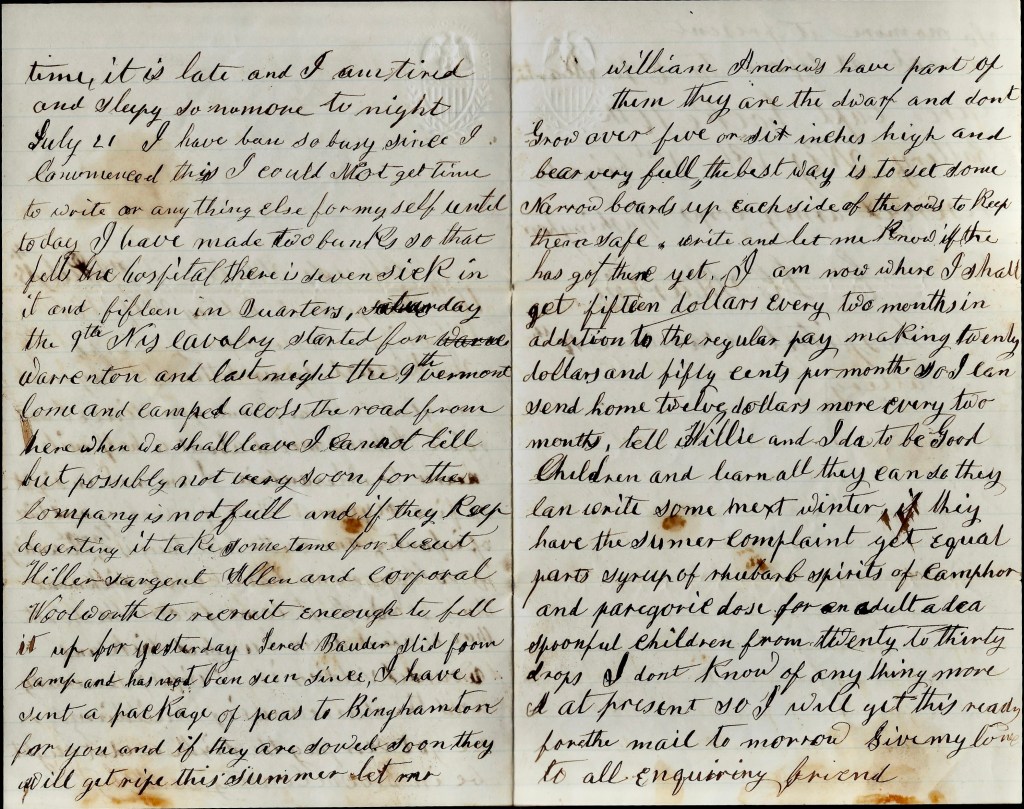 time, it is late and I am tired
and sleepy so nomore to night
July 21 I have ben so busy since I
Commenced this I could Not get time
to write or any thing else for my self until
to day I have made two bunks so that
fills the hospital there is seven sick in
it and fifteen in Quarters, saturday
the 9th cavalry started for
Warrenton and last night the 9th vermont
Come and camped acoss the road from
here when we shall leave I cannot tell
but possibly not very soon for the
Company is not full and if they keep
deserting it take some time for lieut
Hiller sargent Allen and corporal
Woolworth to recruit enough to fill
it up for yesterday Jered Bauder slid from
Camp and has not ben seen since, I have
sent a package of peas to Binghamton
for you and if they are sowed soon they
will get ripe this summer let mr
william Andrews have part of
them they are the dwarf and dont
Grow over five or six inches high and
bear very full, the best way is to set some
Narrow boards up each side of the rows to keep
them safe. write and let me know if the
has got there yet. I am now where I shall
get fifteen dollars every two months in
addition to the regular pay making twenty
dollars and fifty cents per month so I can
send home twelve dollars more every two
months, tell Willie and Ida to be Good
Children and learn all they can so they
can write some next winter, if they
have the sumer complaint get equal
parts syrup of rhubarb spirits of camphor
and paregoric dose for an adult a tea
spoonful children from twenty to thirty
drops I dont know of any thing more
at present so I will get this ready
for the mail to morrow Give my love
to all enquiring friend